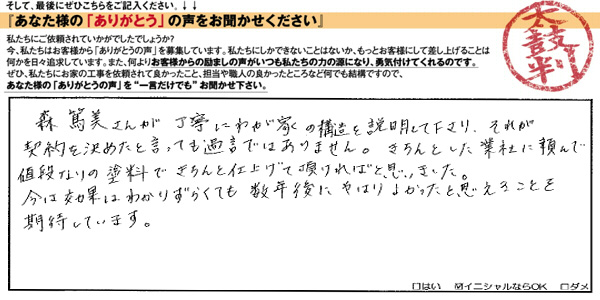 そして、最後にぜひこちらをご記入ください。↓↓
『あなた様の「ありがとう」の声をお聞かせください』
私たちにご依頼されていかがでしたでしょうか?
今、私たちはお客様から「ありがとうの声」を募集しています。私たちにしかできないことはないか、もっとお客様にして差し上げることは
何かを日々追求しています。また、何よりお客様からの励ましの声がいつも私たちの力の源になり、勇気付けてくれるのです。
ぜひ、私たちにお家の工事を依頼されて良かったこと、担当や職人の良かったところなど何でも結構ですので、
あなた様の「ありがとうの声」を“一言だけでも”お聞かせ下さい。
太鼓判
森 篤美さんが 丁寧にわが家の構造を説明して下さり、それが
契約を決めたと言っても過言ではありません。きちんとした業社に頼んで
値段なりの塗料できちんと仕上げて頂ければと思いました。
今は効果はわかりずらくても数年後にやはりよかったと思えることを
期待しています。
□はい ☑イニシャルならOK □ダメ